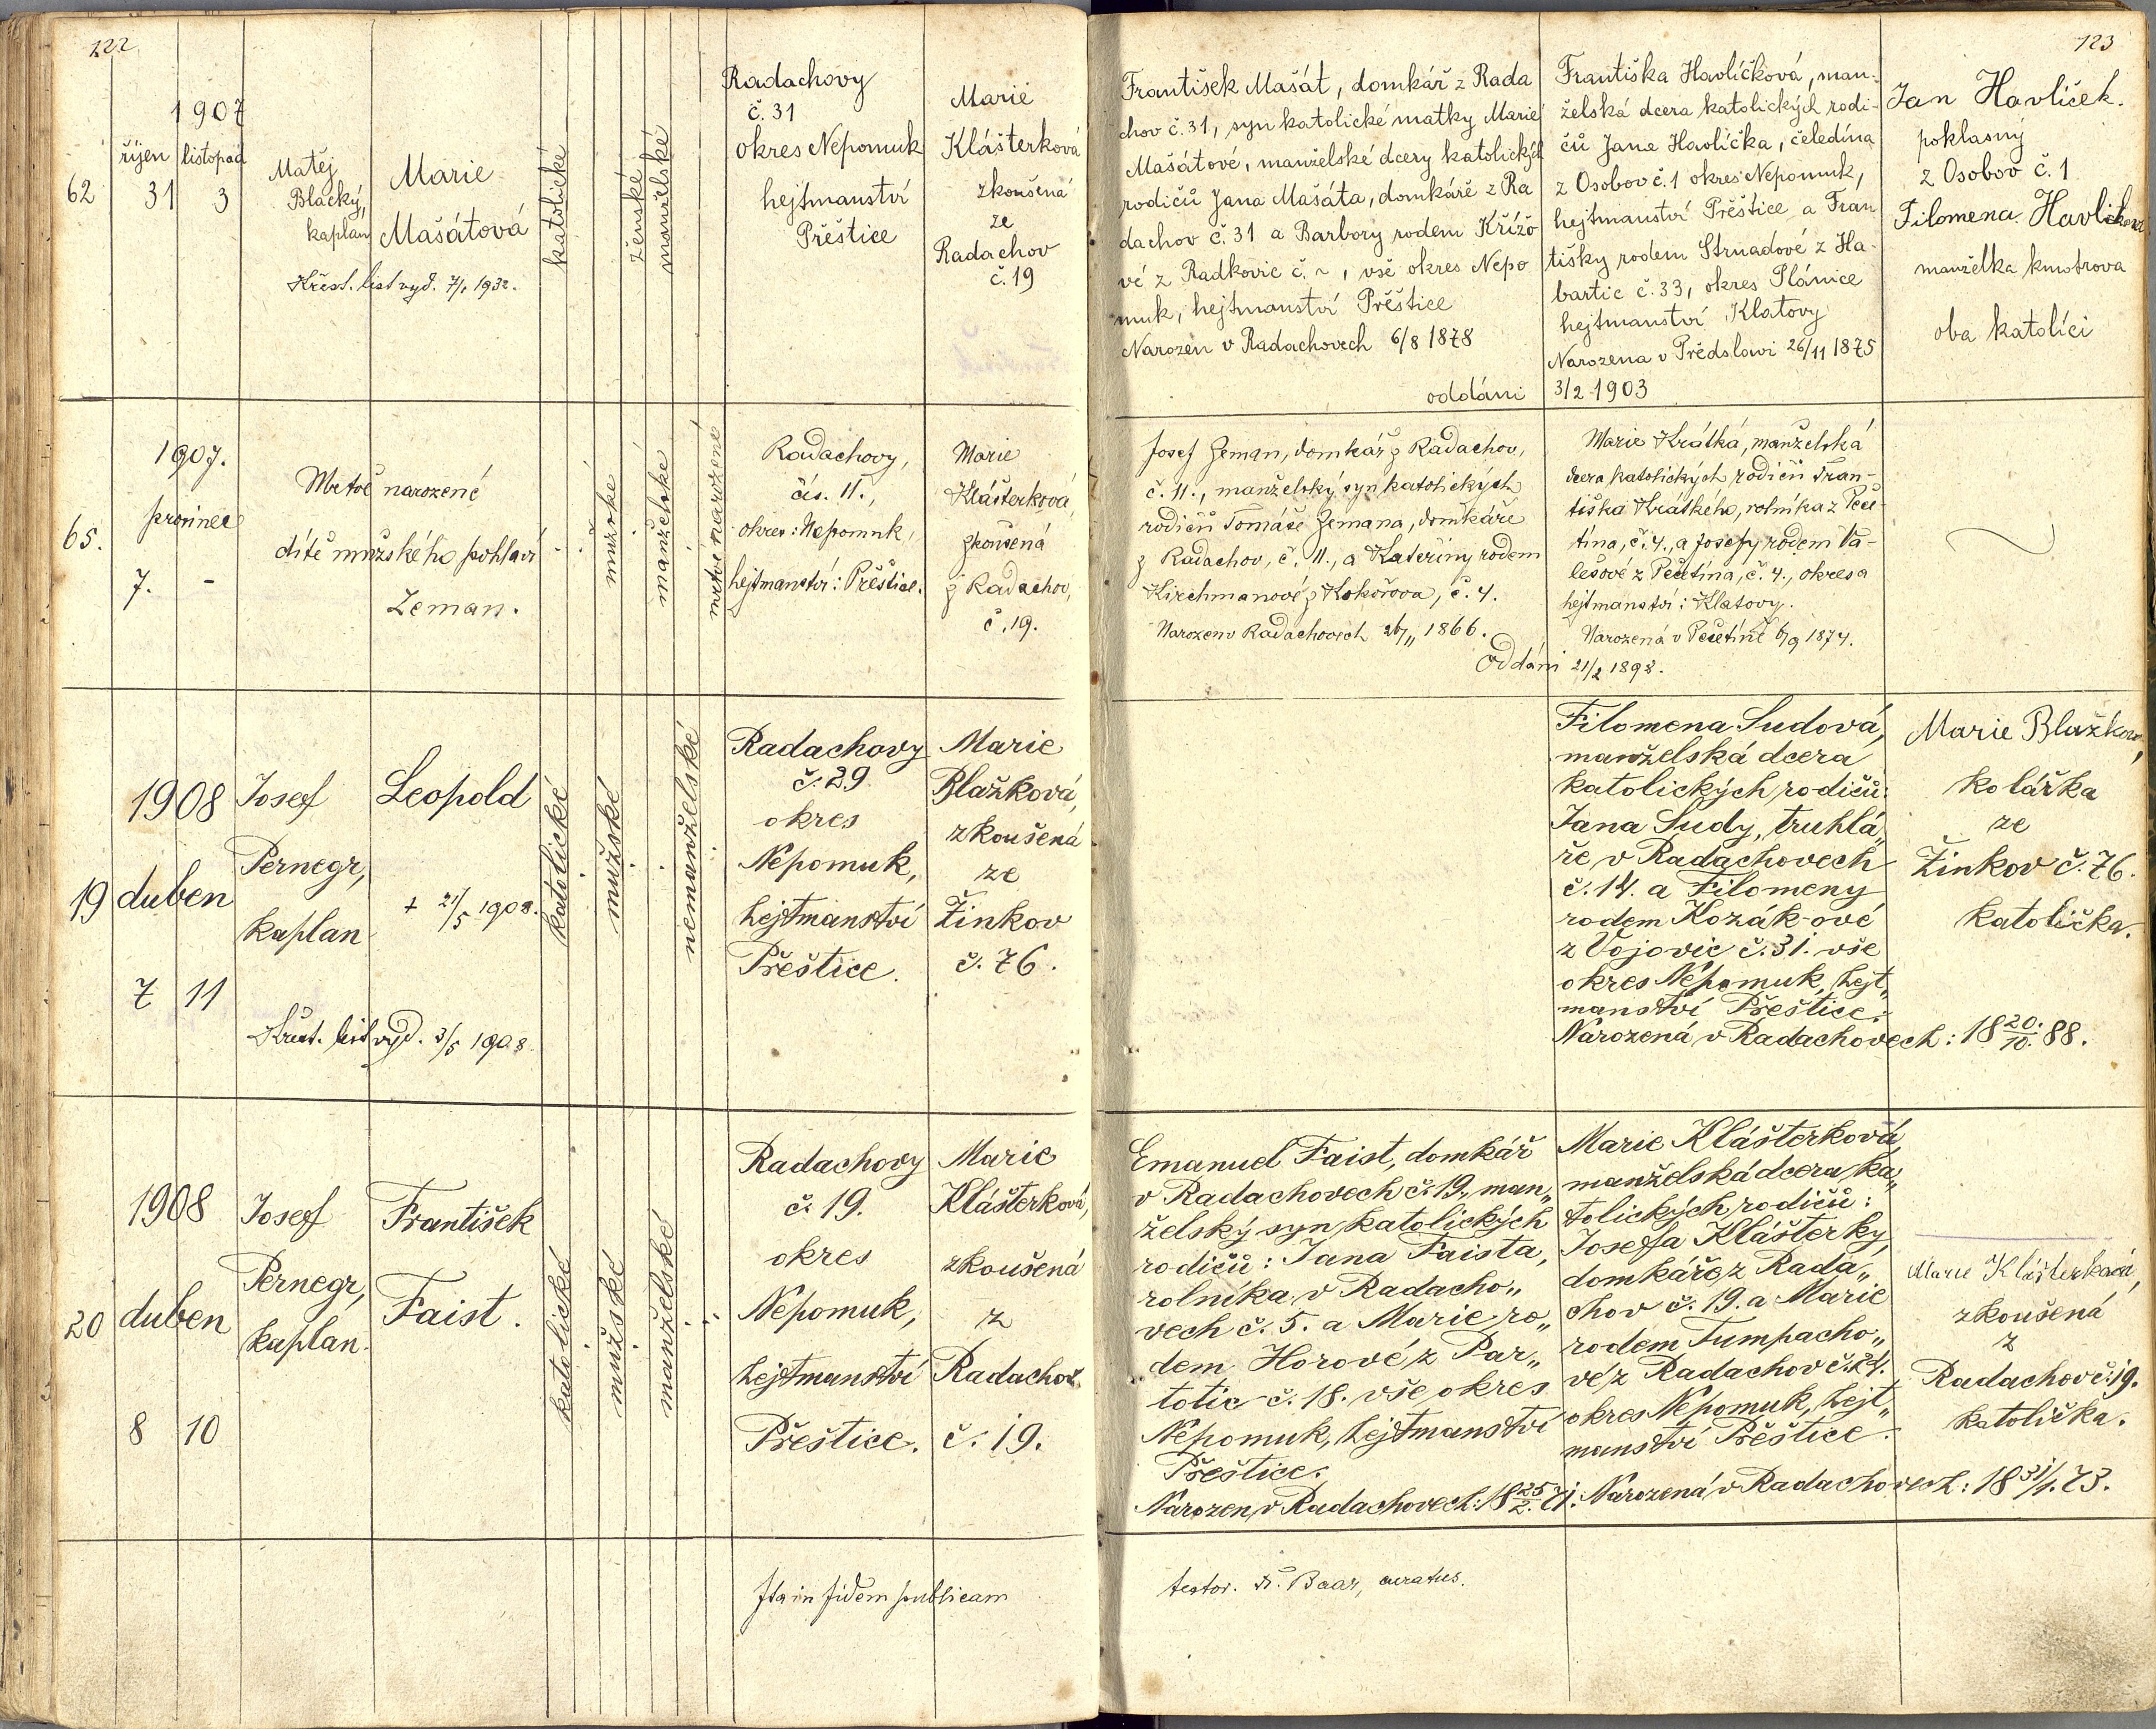 122
1907
říjen listopad
62 31 3
Matěj
Blacký,
kaplan
Marie
Mašátová
Křest. list vyd. 7/1 1932.
katolické
ženské
manželské
Radachovy
č. 31
okres Nepomuk
hejtmanství
Přěštice
Marie
Klášterková
zkoušená
ze
Radachov
č. 19
1907.
prosinec
65.
7. -
Mrtvě narozené
dítě mužského pohlaví
Zeman.
mužské
manželské
mrtvě narozené
Radachovy,
čís. 11.,
okres: Nepomuk,
hejtmanství: Přěštice.
Marie
Klášterková,
zkoušená
z Radachov,
č. 19.
1908
19 duben
7 11
Josef
Pernegr,
kaplan
Leopold
+ 21/5 1908.
Křest. list vyd. 3/5 1908.
katolické
mužské
nemanželské
Radachovy
č. 29
okres
Nepomuk,
hejtmanství
Přeštice.
Marie
Blažková,
zkoušená
ze
Žinkov
č. 76.
1908
20 duben
8 10
Josef
Pernegr,
kaplan.
František
Faist.
katolické
mužské
manželské
Radachovy
č. 19.
okres
Nepomuk,
hejtmanství
Přeštice.
Marie
Klášterková,
zkoušená
z
Radachov
č. 19.
Ita in fidem publicam
123
František Mašát, domkář z Rada
chov č. 31, syn katolické matky Marie
Mašátové, manželské dcery katolických
rodičů Jana Mašáta, domkáře z Ra
dachov č. 31 a Barbory rodem Křížo
vé z Radkovic č. ~, vše okres Nepo
muk, hejtmanství Přěštice
Narozen v Radachovech 6/8 1878
oddáni
Františka Havlíčková, man-
želská dcera katolických rodi-
čů Jana Havlíčka, čeledína
z Osobov č. 1 okres Nepomuk,
hejtmanství Přěštice a Fran
tišky rodem Strnadové z Ha-
bartic č. 33, okres Plánice
hejtmanství Klatovy
Narozena v Předslavi 26/11 1875
3/2 1903
Jan Havlíček.
poklasný
z Osobov č. 1
Filomena Havlíčková
manželka kmotrova
oba katolíci
Josef Zeman, domkář z Radachov,
č. 11., manželský syn katolických
rodičů Tomáše Zemana, domkáře
z Radachov, č. 11., a Kateřiny rodem
Kirchmanové z Kokořova, č. 4.
Narozen v Radachovech 26/11 1866.
Oddáni
Marie Krátká, manželská
dcera katolických rodičů Fran-
tiška Krátkého, rolníka z Peče-
tína, č. 4., a Josefy rodem Va-
lešové z Pečetína, č. 4., okres a
hejtmanství: Klatovy.
Narozená v Pečetíně 6/9 1874.
21/2 1898.
Filomena Sudová,
manželská dcera
katolických rodičů:
Jana Sudy, truhlá„
ře v Radachovech
č. 14. a Filomeny
rodem Kozák-ové
z Vojovic č. 31. vše
okres Nepomuk, hejt„
manství Přeštice.
Narozená v Radachovech: 18 20./10. 88.
Marie Blažková,
kolářka
ze
Žinkov č. 76.
katolička.
Emanuel Faist, domkář
v Radachovech č. 19., man„
želský syn katolických
rodičů: Jana Faista,
rolníka v Radacho„
vech č. 5. a Marie ro„
dem Horové z Par„
totic č. 18. vše okres
Nepomuk, hejtmanství
Přeštice.
Narozen v Radachovech: 18 25/2. 71.
Marie Klášterková,
manželská dcera ka„
tolických rodičů:
Josefa Klášterky,
domkáře z Rada„
chov č. 19. a Marie
rodem Tumpacho„
vé z Radachov č. 24.
okres Nepomuk, hejt„
manství Přěštice.
Narozená v Radachovech: 18 31/1. 73.
Marie Klášterková,
zkoušená
z
Radachov č. 19.
katolička.
testor. Baar, curatus.